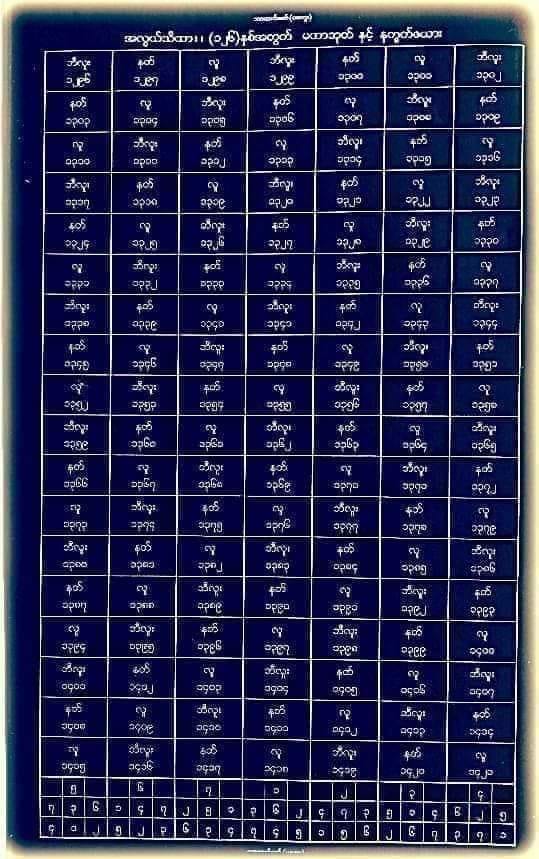 အလွယ်သိထား၊၊ (၁၂၆)နှစ်အတွက် မဟာဘုတ် နှင့် နတွတ်ဇယား
ဘီလူး နတ် လူ ဘီလူး နတ် လူ ဘီလူး
၁၂၉၆ ၁၂၉၇ ၁၂၉၈ ၁၂၉၉ ၁၃၀၀ ၁၃၀၁ ၁၃၀၂
နတ် လူ ဘီလူး နတ် လူ ဘီလူး နတ်
၁၃၀၃ ၁၃၀၄ ၁၃၀၅ ၁၃၀၆ ၁၃၀၇ ၁၃၀၈ ၁၃၀၉
လူ ဘီလူး နတ် လူ ဘီလူး နတ် လူ
၁၃၁၀ ၁၃၁၁ ၁၃၁၂ ၁၃၁၃ ၁၃၁၄ ၁၃၁၅ ၁၃၁၆
ဘီလူး နတ် လူ ဘီလူး နတ် လူ ဘီလူး
၁၃၁၇ ၁၃၁၈ ၁၃၁၉ ၁၃၂၀ ၁၃၂၁ ၁၃၂၂ ၁၃၂၃
နတ် လူ ဘီလူး နတ် လူ ဘီလူး နတ်
၁၃၂၄ ၁၃၂၅ ၁၃၂၆ ၁၃၂၇ ၁၃၂၈ ၁၃၂၉ ၁၃၃၀
လူ ဘီလူး နတ် လူ ဘီလူး နတ် လူ
၁၃၃၁ ၁၃၃၂ ၁၃၃၃ ၁၃၃၄ ၁၃၃၅ ၁၃၃၆ ၁၃၃၇
ဘီလူး နတ် လူ ဘီလူး နတ် လူ ဘီလူး
၁၃၃၈ ၁၃၃၉ ၁၃၄၀ ၁၃၄၁ ၁၃၄၂ ၁၃၄၃ ၁၃၄၄
နတ် လူ ဘီလူး နတ် လူ ဘီလူး နတ်
၁၃၄၅ ၁၃၄၆ ၁၃၄၇ ၁၃၄၈ ၁၃၄၉ ၁၃၅၀ ၁၃၅၁
လူ ဘီလူး နတ် လူ ဘီလူး နတ် လူ
၁၃၅၂ ၁၃၅၃ ၁၃၅၄ ၁၃၅၅ ၁၃၅၆ ၁၃၅၇ ၁၃၅၈
ဘီလူး နတ် လူ ဘီလူး နတ် လူ ဘီလူး
၁၃၅၉ ၁၃၆၀ ၁၃၆၁ ၁၃၆၂ ၁၃၆၃ ၁၃၆၄ ၁၃၆၅
နတ် လူ ဘီလူး နတ် လူ ဘီလူး နတ်
၁၃၆၆ ၁၃၆၇ ၁၃၆၈ ၁၃၆၉ ၁၃၇၀ ၁၃၇၁ ၁၃၇၂
လူ ဘီလူး နတ် လူ ဘီလူး နတ် လူ
၁၃၇၃ ၁၃၇၄ ၁၃၇၅ ၁၃၇၆ ၁၃၇၇ ၁၃၇၈ ၁၃၇၉
ဘီလူး နတ် လူ ဘီလူး နတ် လူ ဘီလူး
၁၃၈၀ ၁၃၈၁ ၁၃၈၂ ၁၃၈၃ ၁၃၈၄ ၁၃၈၅ ၁၃၈၆
နတ် လူ ဘီလူး နတ် လူ ဘီလူး နတ်
၁၃၈၇ ၁၃၈၈ ၁၃၈၉ ၁၃၉၀ ၁၃၉၁ ၁၃၉၂ ၁၃၉၃
လူ ဘီလူး နတ် လူ ဘီလူး နတ် လူ
၁၃၉၄ ၁၃၉၅ ၁၃၉၆ ၁၃၉၇ ၁၃၉၈ ၁၃၉၉ ၁၄၀၀
ဘီလူး နတ် လူ ဘီလူး နတ် လူ ဘီလူး
၁၄၀၁ ၁၄၀၂ ၁၄၀၃ ၁၄၀၄ ၁၄၀၅ ၁၄၀၆ ၁၄၀၇
နတ် လူ ဘီလူး နတ် လူ ဘီလူး နတ်
၁၄၀၈ ၁၄၀၉ ၁၄၁၀ ၁၄၁၁ ၁၄၁၂ ၁၄၁၃ ၁၄၁၄
လူ ဘီလူး နတ် လူ ဘီလူး နတ် လူ
၁၄၁၅ ၁၄၁၆ ၁၄၁၇ ၁၄၁၈ ၁၄၁၉ ၁၄၂၀ ၁၄၂၁
၅ ၆ ၇ ၁ ၂ ၃ ၄
၇ ၃ ၆ ၁ ၄ ၇ ၂ ၅ ၁ ၃ ၆ ၂ ၄ ၇ ၃ ၅ ၁ ၄ ၆ ၂ ၅
၄ ၁ ၂ ၅ ၂ ၃ ၆ ၃ ၄ ၇ ၄ ၅ ၁ ၅ ၆ ၂ ၆ ၇ ၃ ၇ ၁